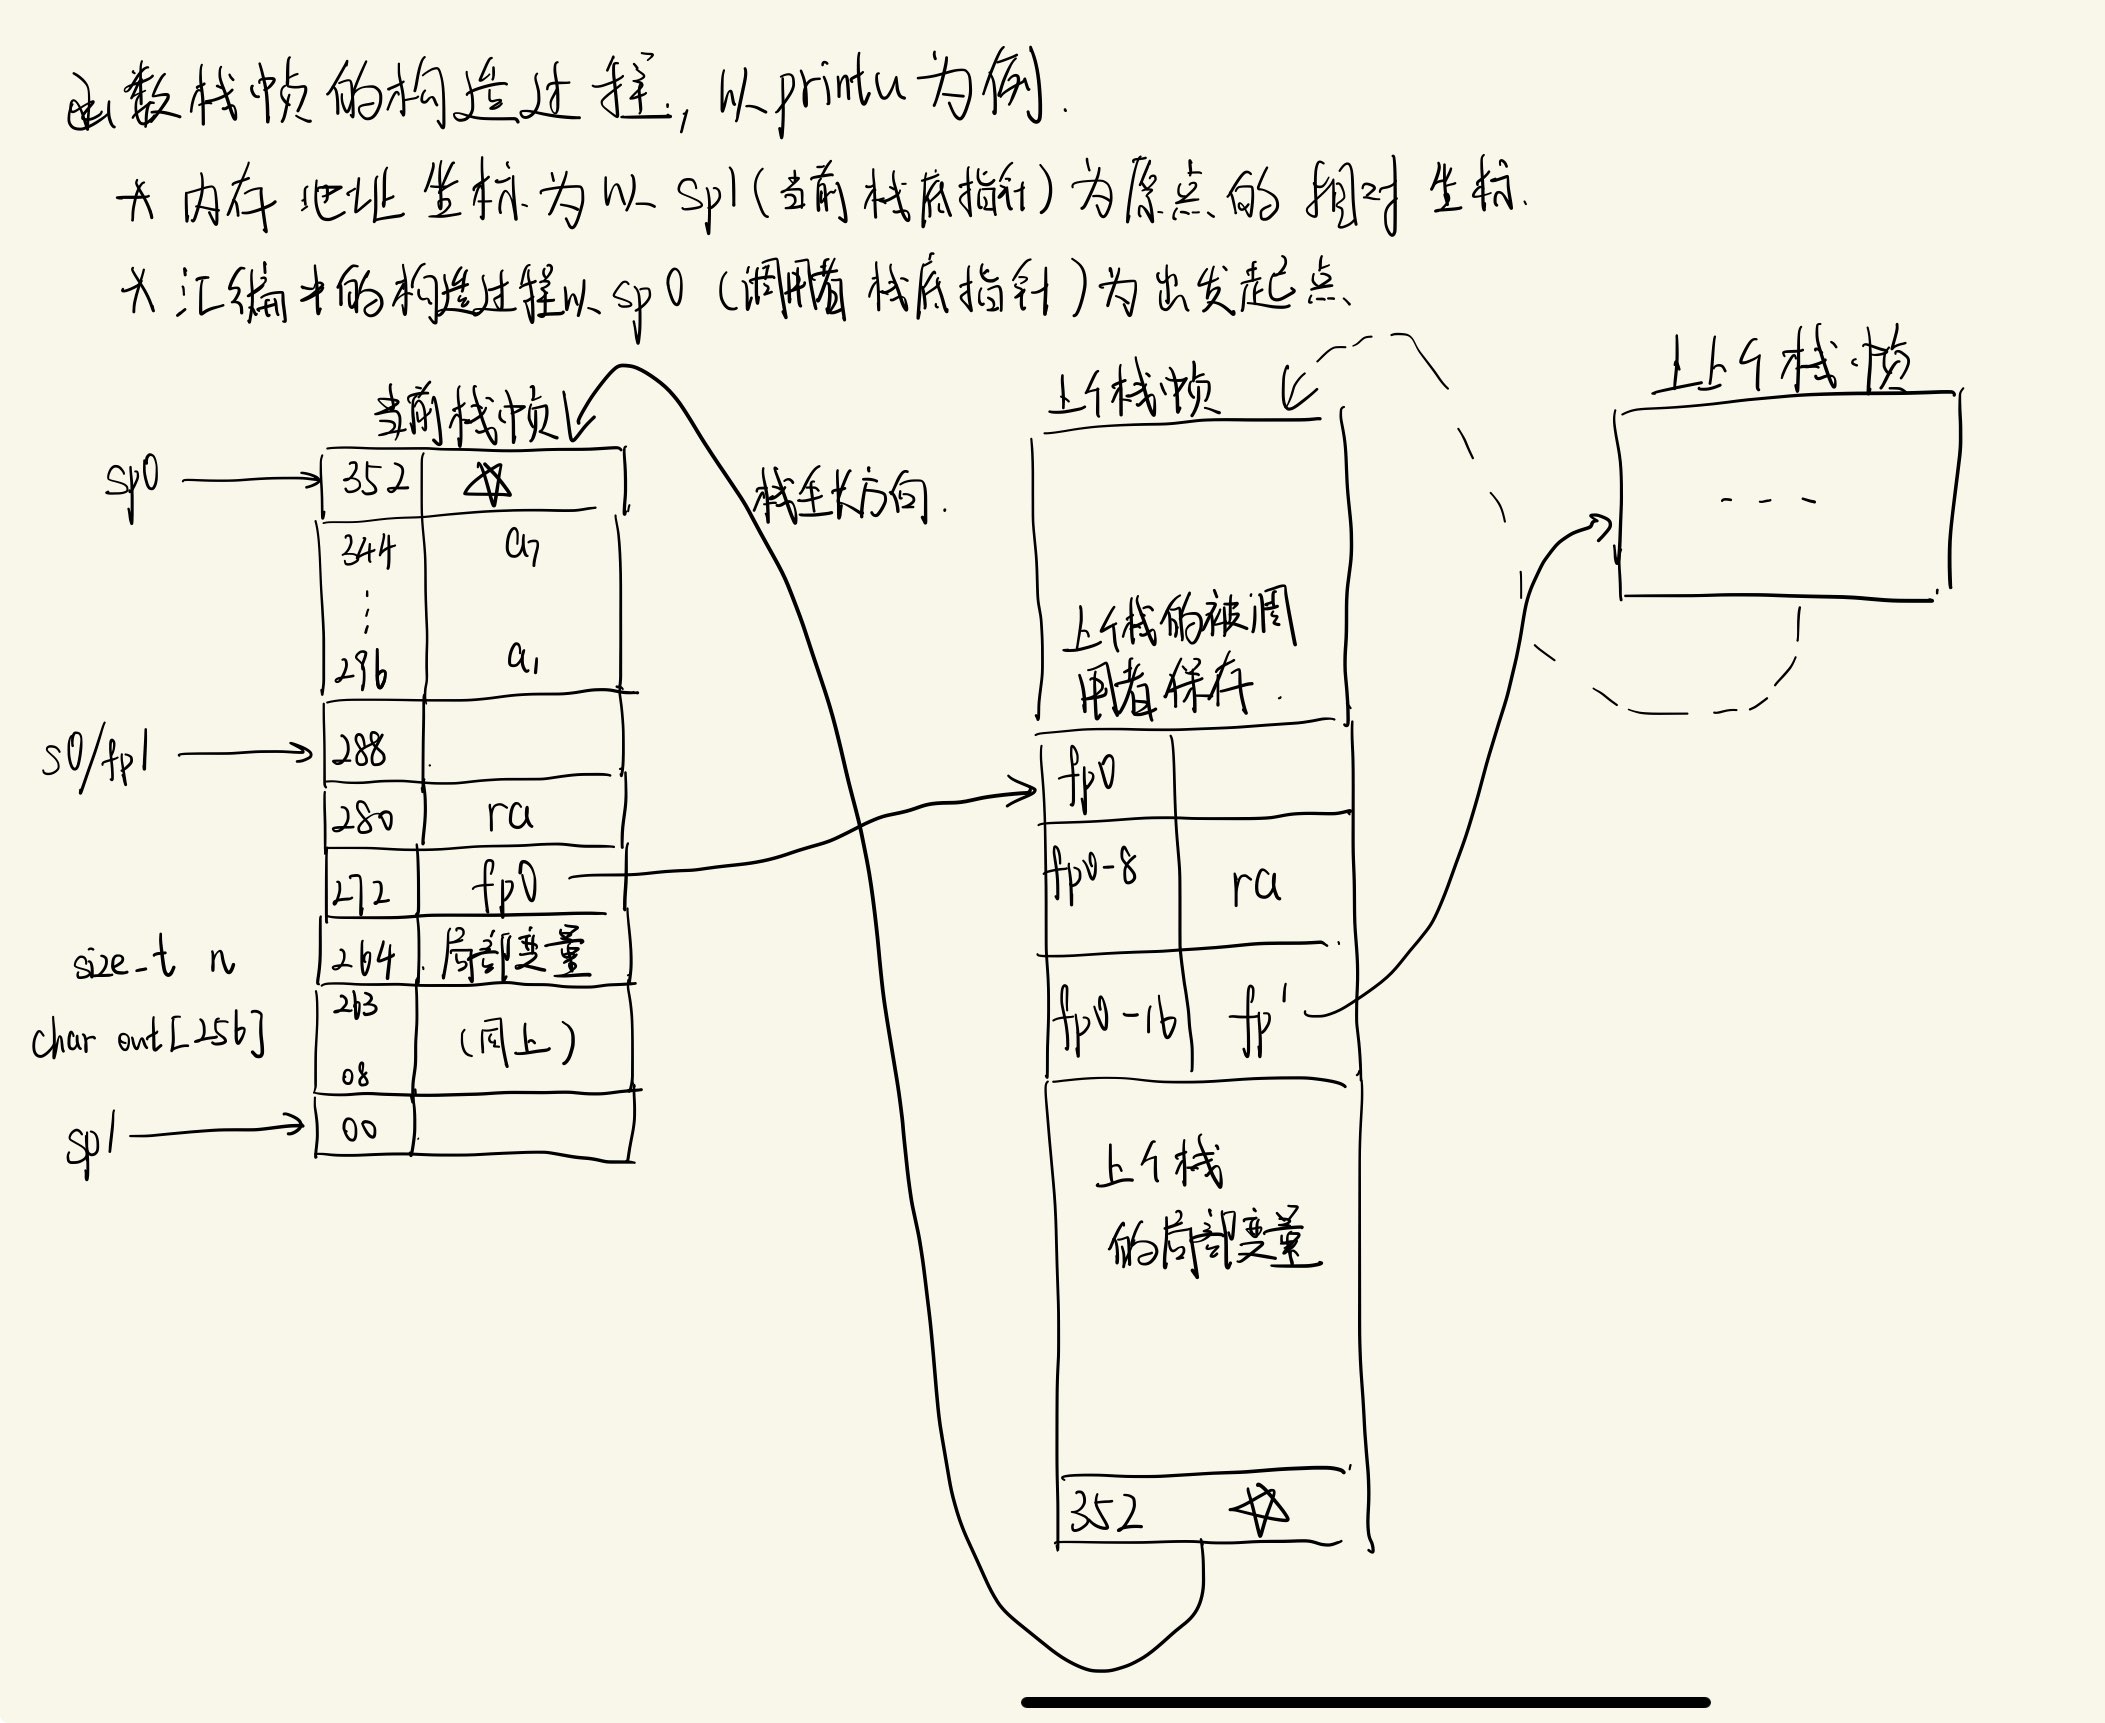 函数栈帧的构造过程, 以printu为例.
* 内存地址坐标为以sp1(当前栈底指针)为原点的相对坐标.
* 汇编中的构造过程以sp0(调用者栈底指针)为出发起点.
当前栈帧
sp0
352 ☆
344 a7
⋮
296 a1
s0/fp1
288
280 ra
272 fp0
size_t n
264 局部变量
char out[256]
263
(同上)
08
sp1
00
栈生长方向.
上个栈帧
上个栈的被调
用者保存.
fp0
fp0-8 ra
fp0-16 fp'
上个栈
的局部变量
352 ☆
上上个栈帧
- - -